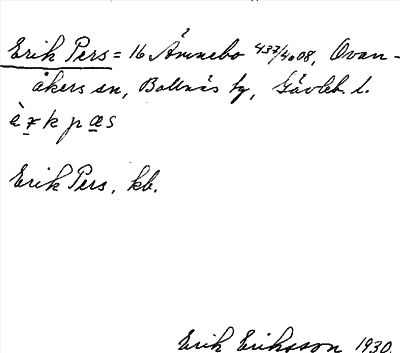 Erik Pers = 16 Ämnebo 437/4008, Ovan-
åkers sn, Bollnäs tg, Gävleb. l.
è r̲ k p æ̲ s
Erik Pers, kb.
Erik Eriksson 1930.